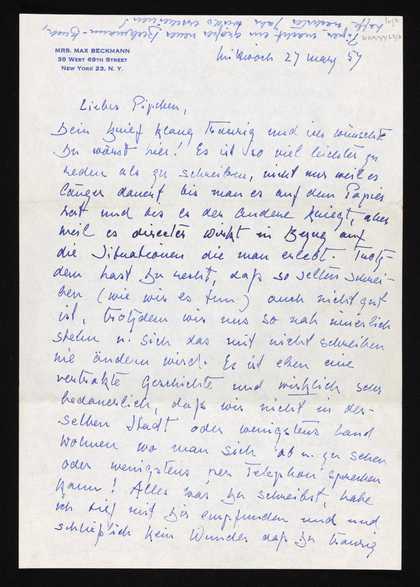 MRS. MAX BECKMANN
38 WEST 69TH STREET
NEW YORK 23, N. Y.
Mittwoch 27 März 57
Liebes Pipchen,
Dein Brief klang traurig und ich wünschte
Du wärst hier! Es ist so viel leichter zu
reden als zu schreiben, nicht nur weil es
länger dauert bis man es auf dem Papier
hat und bis es der Andere kriegt, aber
weil es directer wirkt in Bezug auf
die Situationen die man erlebt. Trotz
dem hast Du recht, daß so selten schrei-
ben (wie wir es tun) auch nicht gut
ist, trotzdem wir uns so nah innerlich
stehn u. sich das mit nicht schreiben
nie ändern wird. Es ist eben eine
vertrakte Geschichte und wirklich sehr
bedauerlich, daß wir nicht in der-
selben Stadt oder wenigstens Land
wohnen wo man sich ab u. zu sehen
oder wenigstens per Telephon sprechen
kann! Alles was Du schreibst, habe
ich tief mit Dir empfunden und und
schließlich kein Wunder daß Du traurig